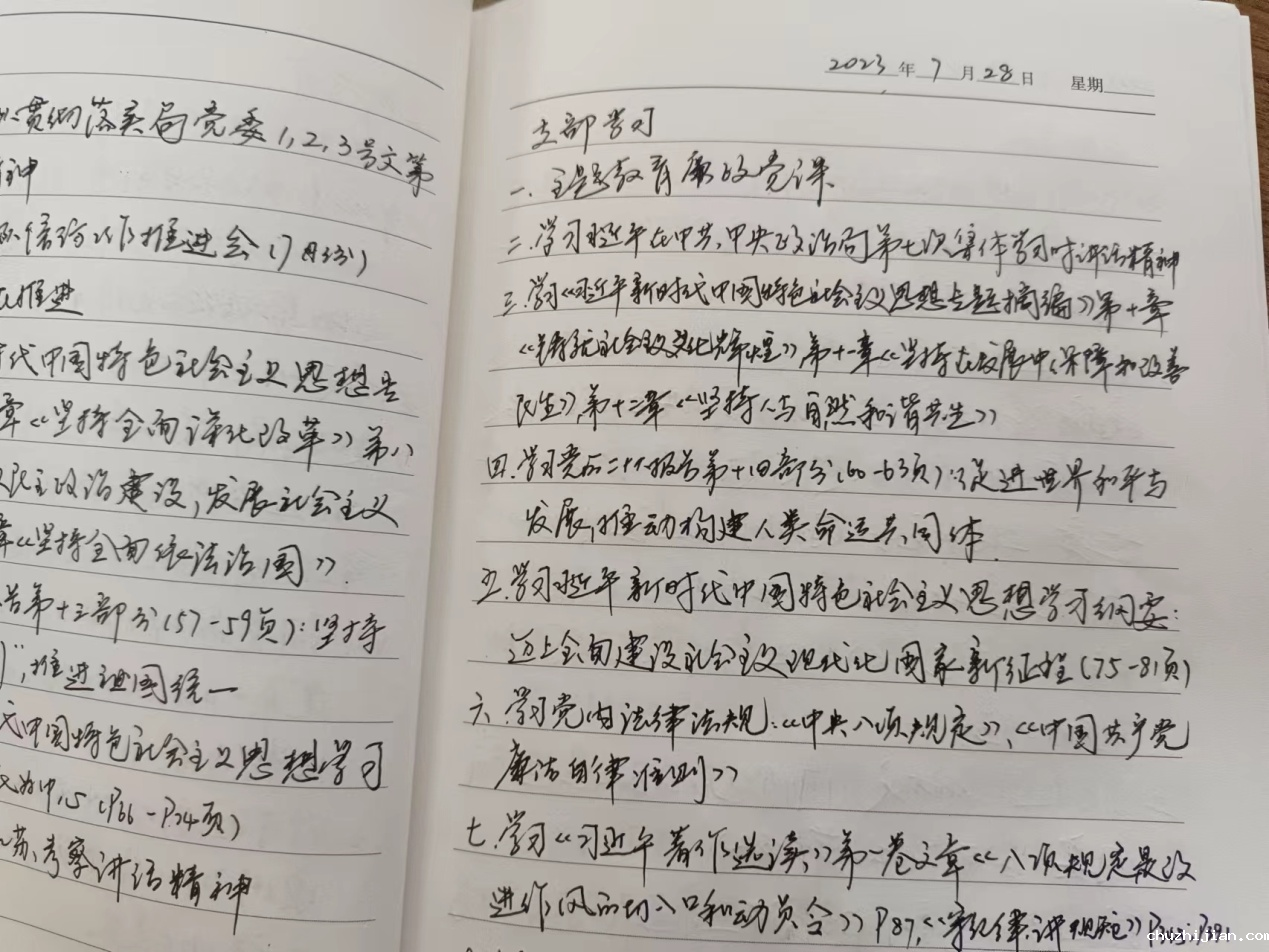 贯彻落实局党委1,2,3号文第
神
信访工作推进会(7月份)
推进
代中国特色社会主义思想专
章《坚持全面深化改革》第八
民主政治建设,发展社会主义
章《坚持全面依法治国》.
告第十三部分(57-59页):坚持
",推进祖国统一
中国特色社会主义思想学习
为中心(P66-P74页)
苏考察讲话精神
2023年7月28日 星期
支部学习
一.主题教育廉政党课
二.学习习近平在中共中央政治局第七次集体学习时讲话精神
三.学习《习近平新时代中国特色社会主义思想专题摘编》第十章
《铸就社会主义文化新辉煌》第十一章《坚持在发展中保障和改善
民生》,第十二章《坚持人与自然和谐共生》
四.学习党的二十大报告第十四部分(60-63页):促进世界和平与
发展,推动构建人类命运共同体
五.学习习近平新时代中国特色社会主义思想学习纲要:
迈上全面建设社会主义现代化国家新征程(75-81页)
六.学习党内法律法规:《中央八项规定》、《中国共产党
廉洁自律准则》
七.学习《习近平著作选读》第一卷文章《八项规定是改
进作风的切入口和动员令》P87,《严纪律、讲规矩》
chuzhijian.com